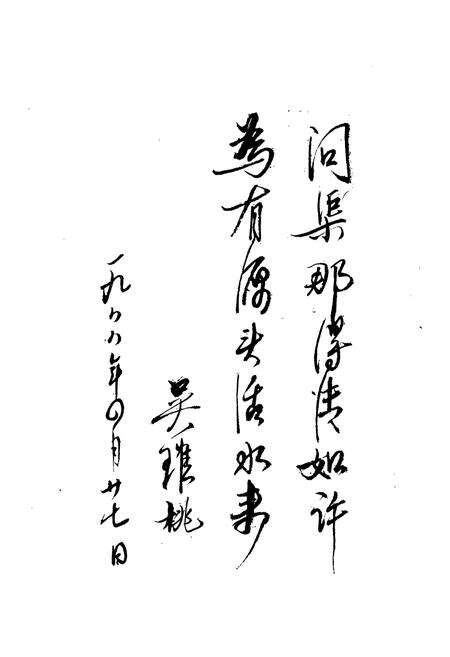 问渠那得清如许
為有源头活水来
吴 桃
一九八八年四月廿七日